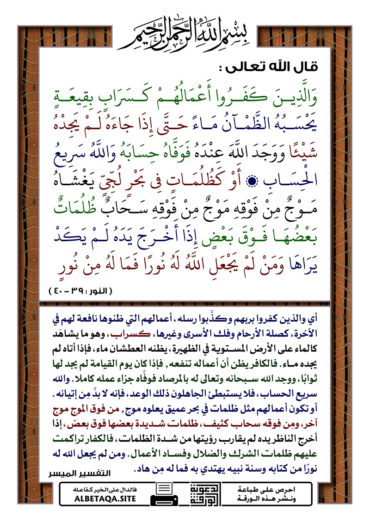 بسم الله الرحمن الرحيم
قال الله تعالى :
وَالَّذِينَ كَفَرُوا أَعْمَالُهُمْ كَسَرَابٍ بِقِيعَةٍ
يَحْسَبُهُ الظَّمْآنُ مَاءً حَتَّى إِذَا جَاءَهُ لَمْ يَجِدْهُ
شَيْئًا وَوَجَدَ اللَّهَ عِنْدَهُ فَوَفَّاهُ حِسَابَهُ وَاللَّهُ سَرِيعُ
الْحِسَابِ ۞ أَوْ كَظُلُمَاتٍ فِي بَحْرٍ لُجِّيٍّ يَغْشَاهُ
مَوْجٌ مِنْ فَوْقِهِ مَوْجٌ مِنْ فَوْقِهِ سَحَابٌ ظُلُمَاتٌ
بَعْضُهَا فَوْقَ بَعْضٍ إِذَا أَخْرَجَ يَدَهُ لَمْ يَكَدْ
يَرَاهَا وَمَنْ لَمْ يَجْعَلِ اللَّهُ لَهُ نُورًا فَمَا لَهُ مِنْ نُورٍ
( النور : ٣٩ - ٤٠ )
أي والذين كفروا بربهم وكذَّبوا رسله، أعمالهم التي ظنوها نافعة لهم في
الآخرة، كصلة الأرحام وفك الأسرى وغيرها، كسراب، وهو ما يشاهَد
كالماء على الأرض المستوية في الظهيرة، يظنه العطشان ماء، فإذا أتاه لم
يجده ماء. فالكافر يظن أن أعماله تنفعه، فإذا كان يوم القيامة لم يجد لها
ثوابًا، ووجد الله سبحانه وتعالى له بالمرصاد فوفَّاه جزاء عمله كاملا. والله
سريع الحساب، فلا يستبطئ الجاهلون ذلك الوعد، فإنه لا بدَّ مِن إتيانه.
أو تكون أعمالهم مثل ظلمات في بحر عميق يعلوه موج، من فوق الموج موج
آخر، ومِن فوقه سحاب كثيف، ظلمات شديدة بعضها فوق بعض، إذا
أخرج الناظر يده لم يقارب رؤيتها من شدة الظلمات، فالكفار تراكمت
عليهم ظلمات الشرك والضلال وفساد الأعمال. ومن لم يجعل الله له
نورًا من كتابه وسنة نبيه يهتدي به فما له مِن هاد.
التفسير الميسر
احرص على طباعة
ونشر هذه الورقة
الورقة
الدعوية
فالدال على الخير كفاعله
ALBETAQA.SITE